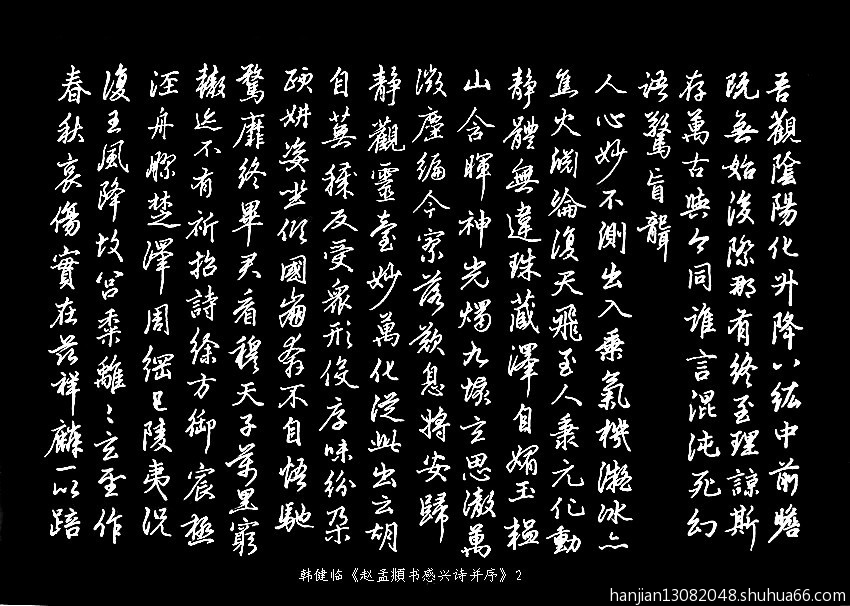 吾觀陰陽化升降八紘中前瞻
既無始後際那有終至理諒斯
存萬古與今同誰言混沌死幻
語驚盲聾
人心妙不測出入乘氣機凝冰亦
焦火淵淪復天飛至人秉元化動
静體無違珠藏澤自媚玉韞
山含暉神光燭九垓玄思澈萬
微塵編今寥落歎息將安歸
静觀靈臺妙萬化從此出云胡
自蕪穢反受衆形役厚味紛朵
頤妍姿坐傾國崩奔不自悟馳
騖靡終畢君看穆天子萬里窮
轍迹不有祈招詩徐方御宸極
涇舟膠楚澤周綱已陵夷况
復王風降故宮黍離〻玄聖作
春秋哀傷實在兹祥麟一以踣
韩健临《赵孟頫书感兴诗并序》2
hanjian13082048.shuhua66.com